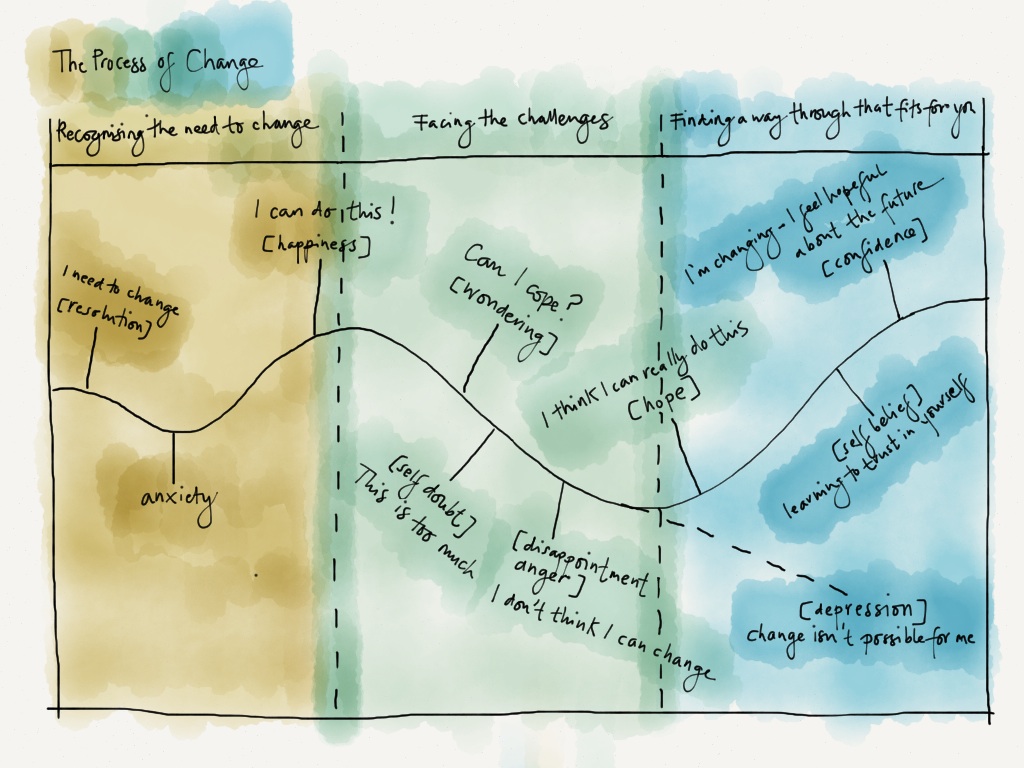 The Process of Change
Recognising the need to change
Facing the challenges
Finding a way through that fits for you
I need to change
[resolution]
anxiety
I can do this!
[happiness]
Can I cope?
[Wondering]
[self doubt]
This is too much
[disappointment
anger]
I don't think I can change
I think I can really do this
[hope]
I'm changing - I feel hopeful
about the future
[confidence]
[self belief]
learning to trust in yourself
[depression]
change isn't possible for me